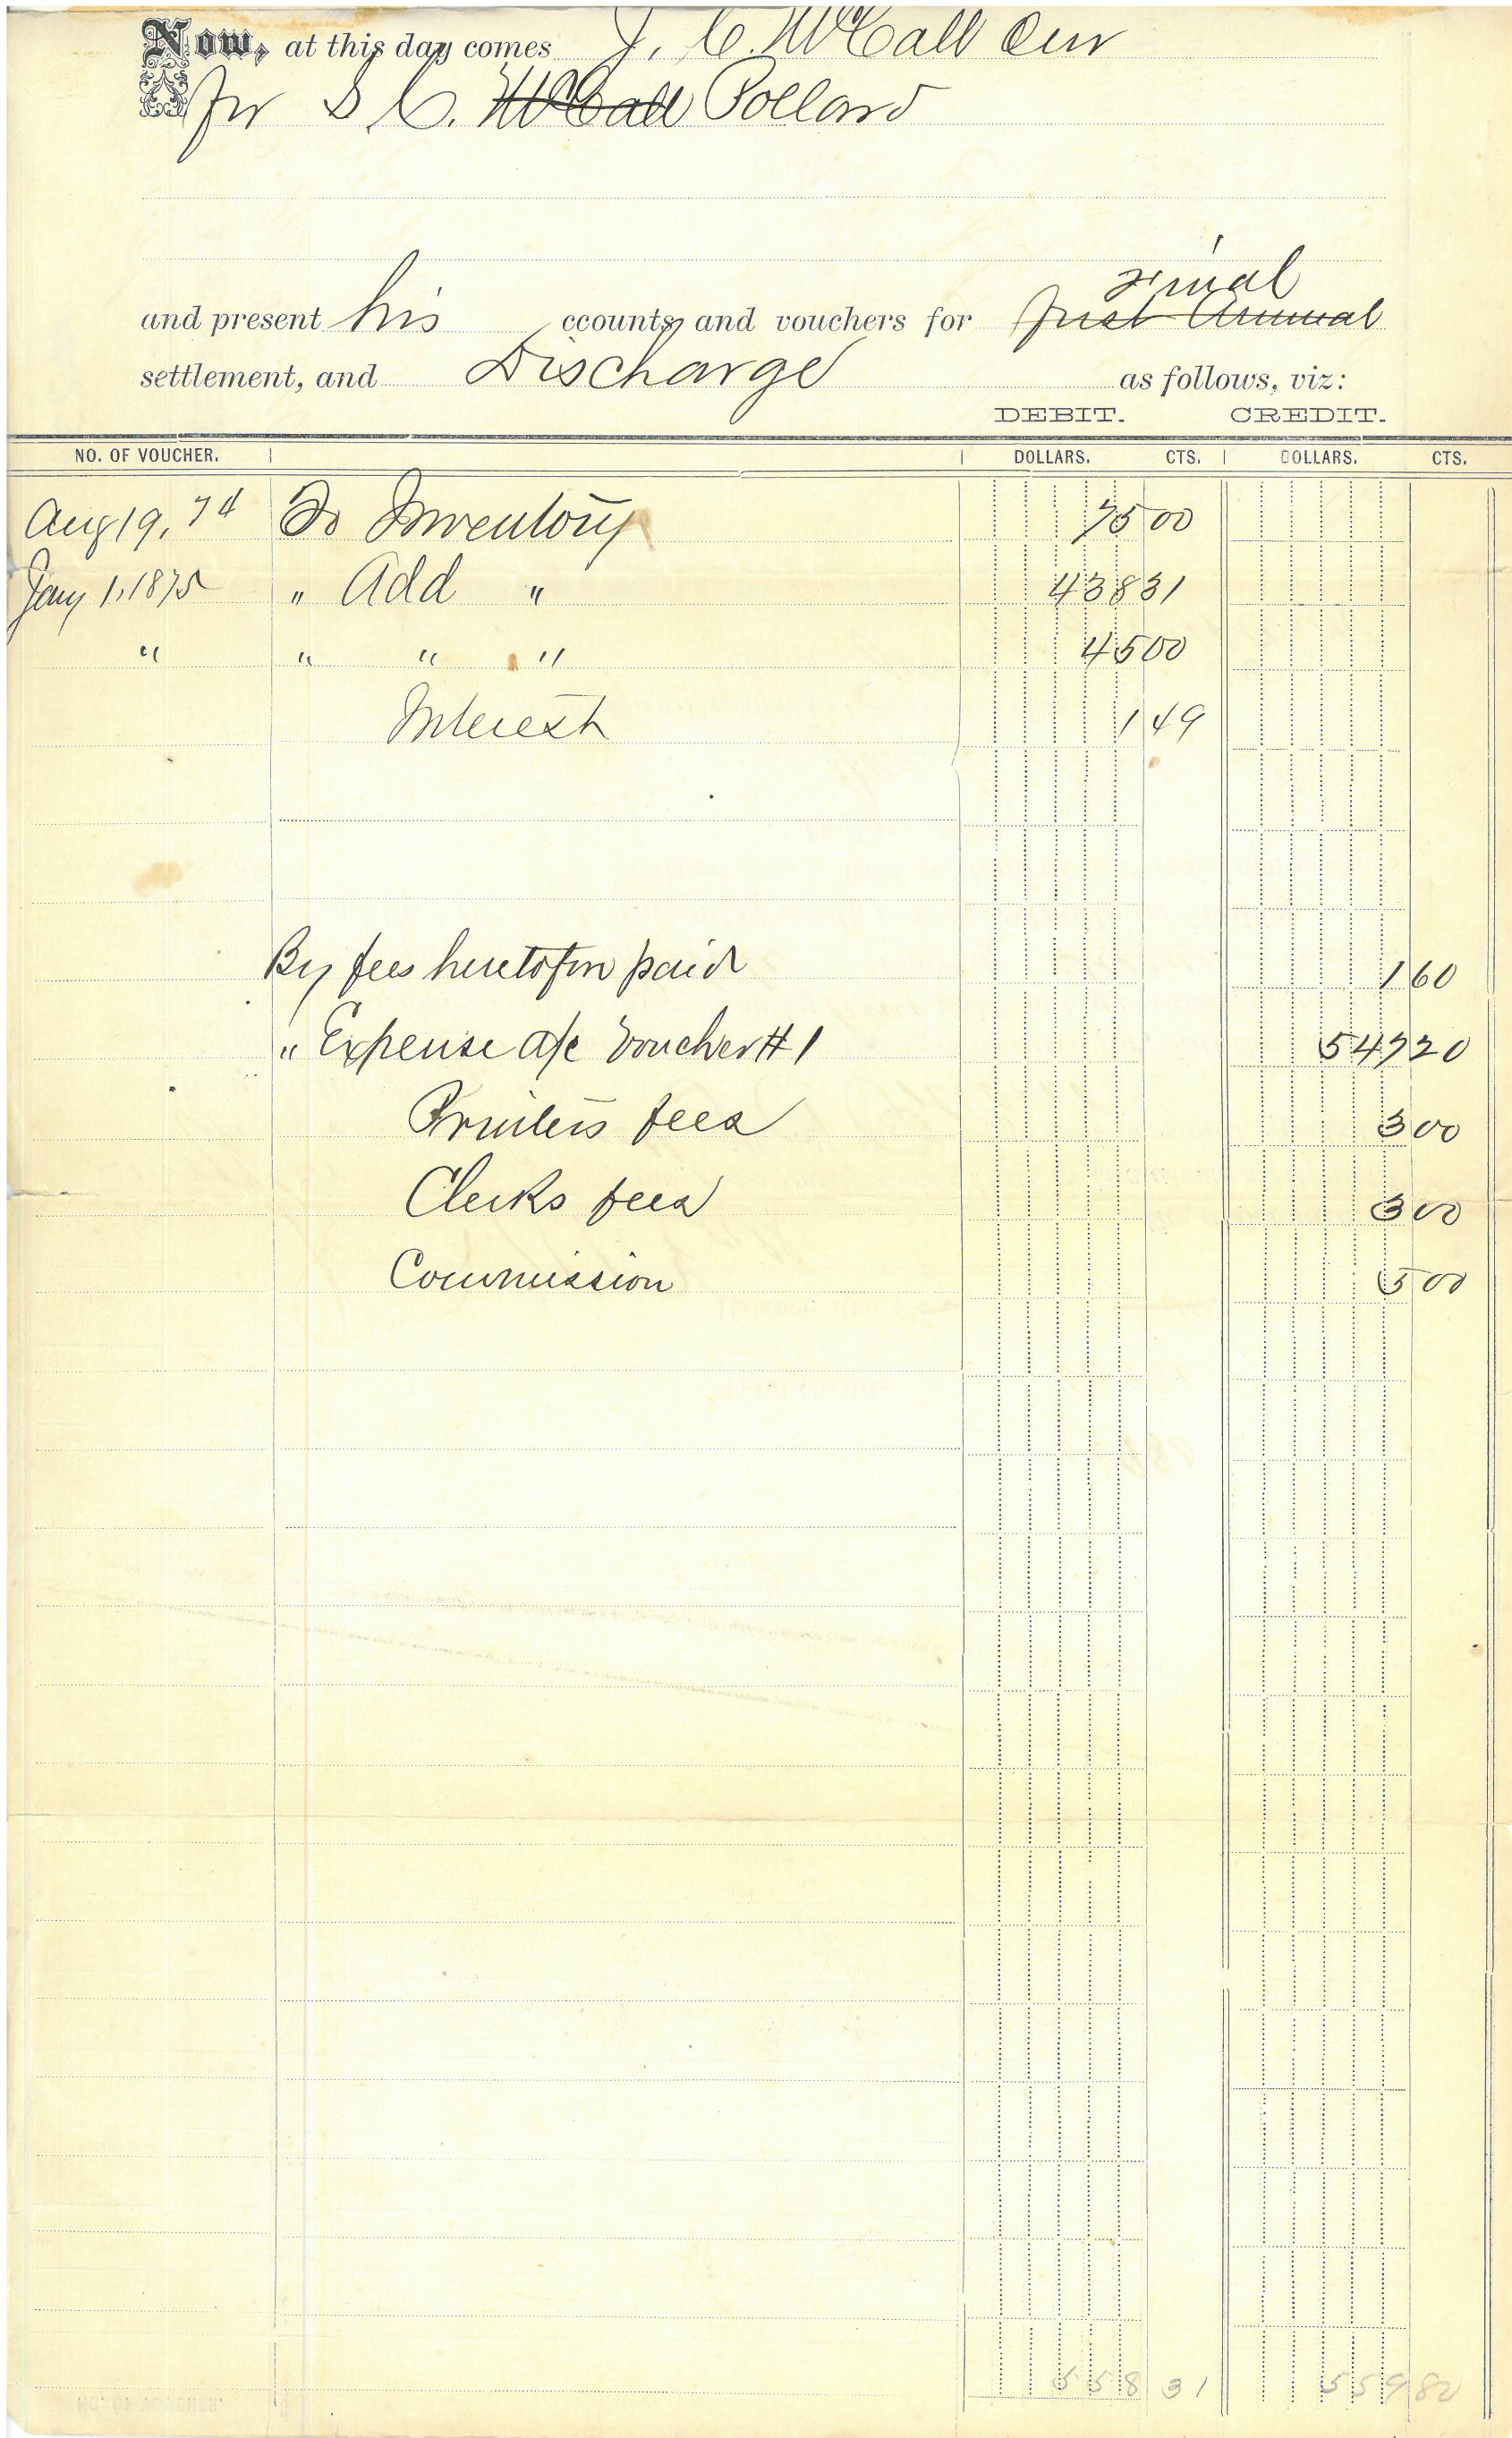 Now, at this day comes J. C. McCall Cur
for S. C. McCall Pollard
Final
and present his ccounts and vouchers for first Annual
settlement, and Discharge as follows, viz:
DEBIT. CREDIT.
NO. OF VOUCHER. DOLLARS. CTS. DOLLARS. CTS.
Aug 19, 74 To Inventory 75 00
Jany 1, 1875 " Add " 438 31
" " " " 45 00
Interest 1 49
By fees heretofore paid 1 60
" Expense a/c Voucher # 1 547 20
Printers fees 3 00
Clerks fees 3 00
Commission 5 00
558 31 559 80